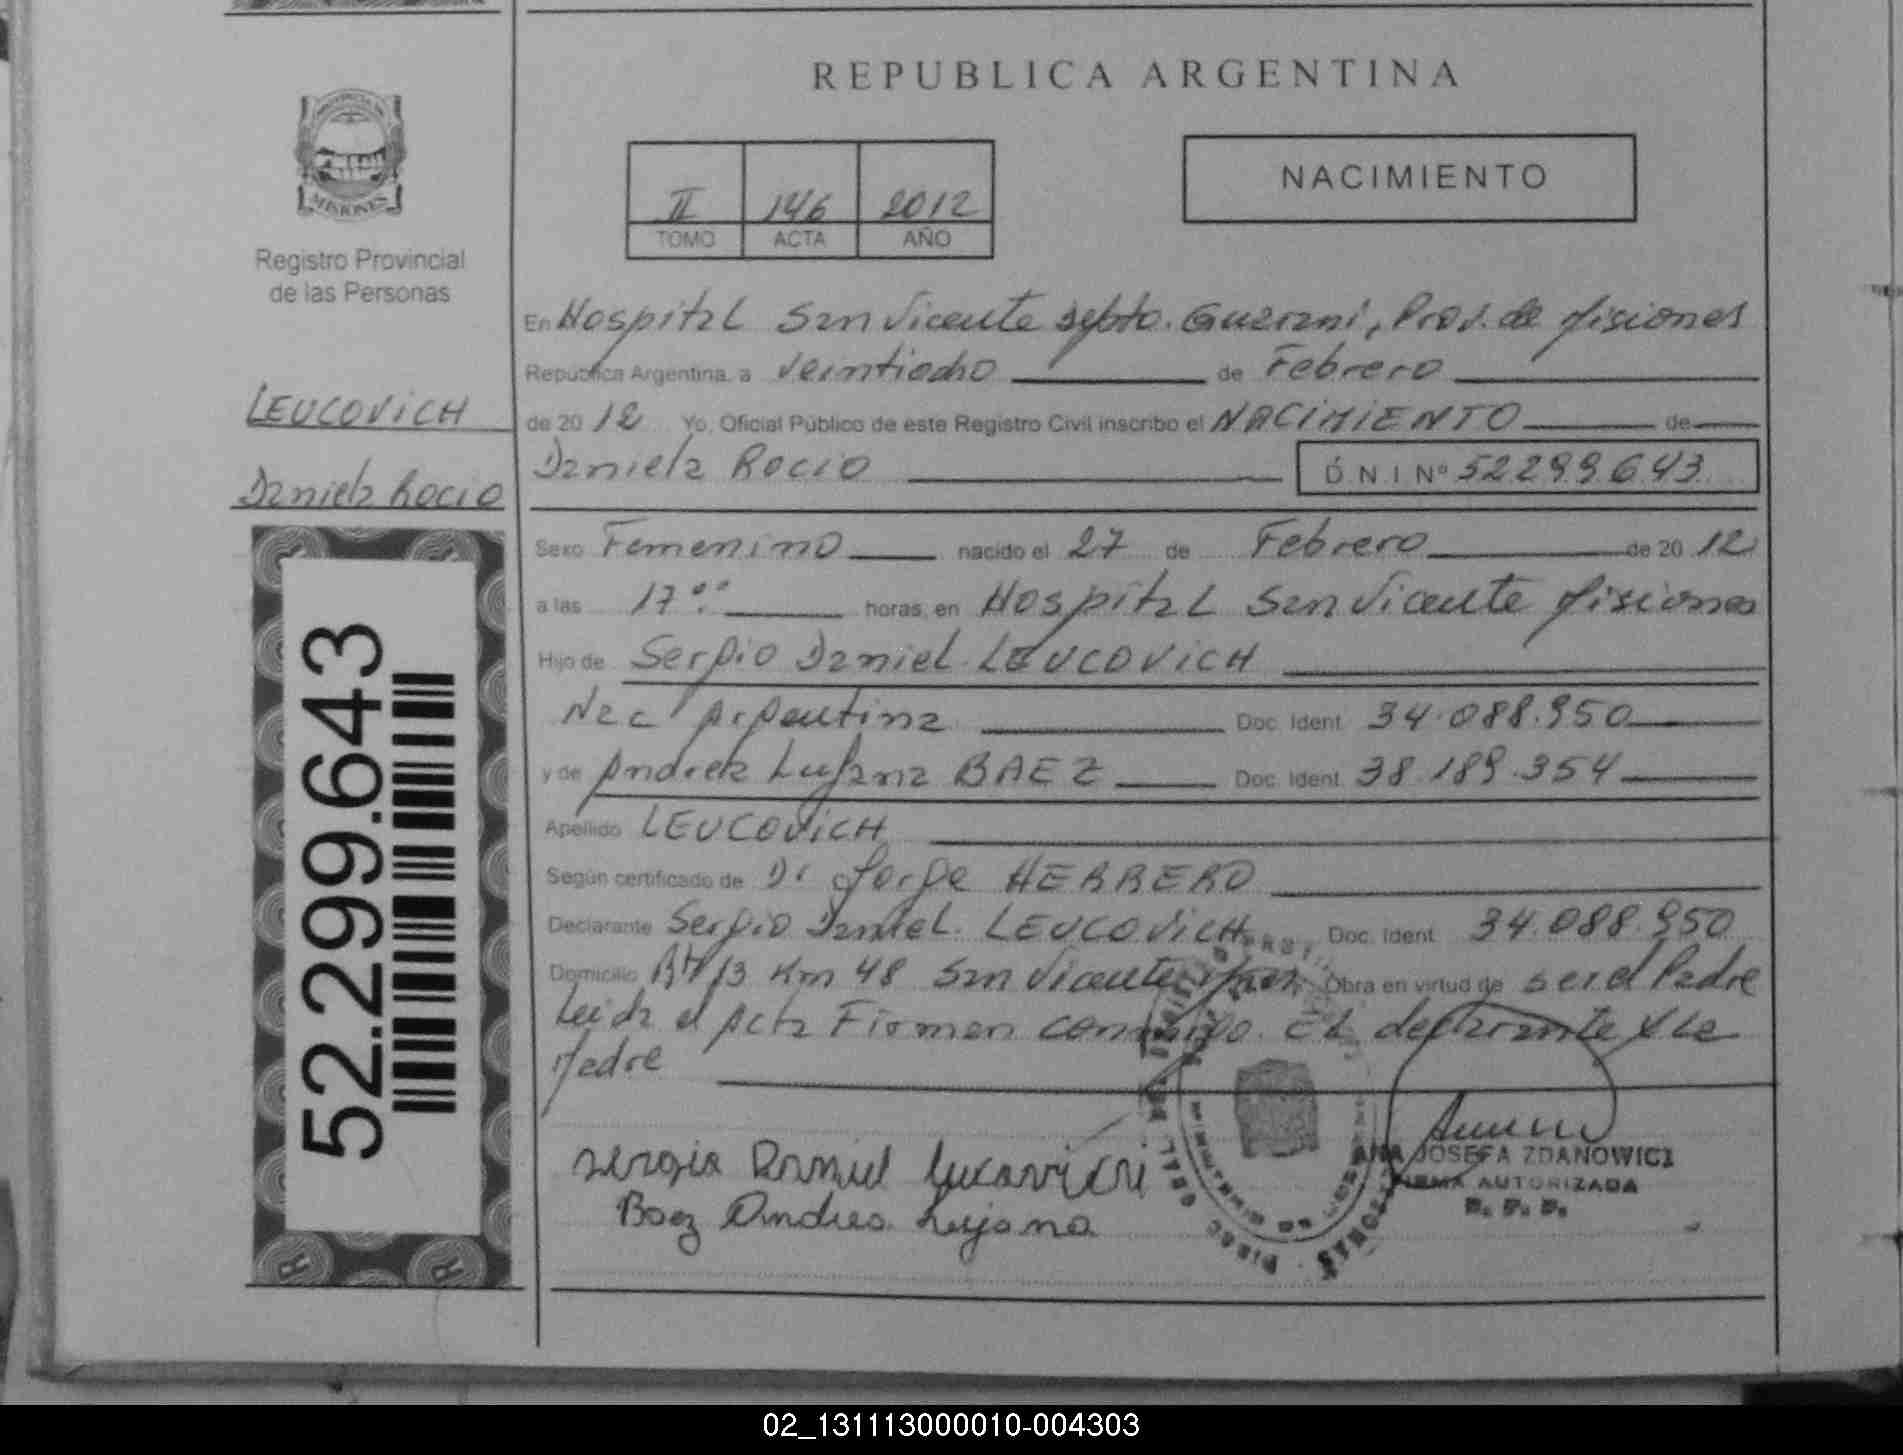 REPUBLICA ARGENTINA
PROVINCIA DE
MISIONES
Registro Provincial
de las Personas
II 146 2012
TOMO ACTA AÑO
NACIMIENTO
LEUCOVICH
Daniela Rocio
52.299.643
En Hospital San Vicente Depto. Guarani, Prov. de Misiones
República Argentina, a veintiocho de Febrero
de 20 12 Yo, Oficial Público de este Registro Civil inscribo el NACIMIENTO de
Daniela Rocio D.N.I Nº 52299643
Sexo Femenino nacido el 27 de Febrero de 20 12
a las 17:00 horas, en Hospital San Vicente Misiones
Hijo de Sergio Daniel LEUCOVICH
Nac Argentina Doc. Ident. 34.088.950
y de Andrea Lujana BAEZ Doc. Ident. 38.189.354
Apellido LEUCOVICH
Según certificado de Dr Jorge HERRERO
Declarante Sergio Daniel LEUCOVICH Doc. Ident. 34.088.950
Domicilio Km 48 San Vicente Obra en virtud de ser el Padre
Leida el Acta Firman conmigo. El declarante y la
Madre
Sergio Daniel Leucovich
Baez Andrea Lujana
ANA JOSEFA ZDANOWICZ
FIRMA AUTORIZADA
02_131113000010-004303